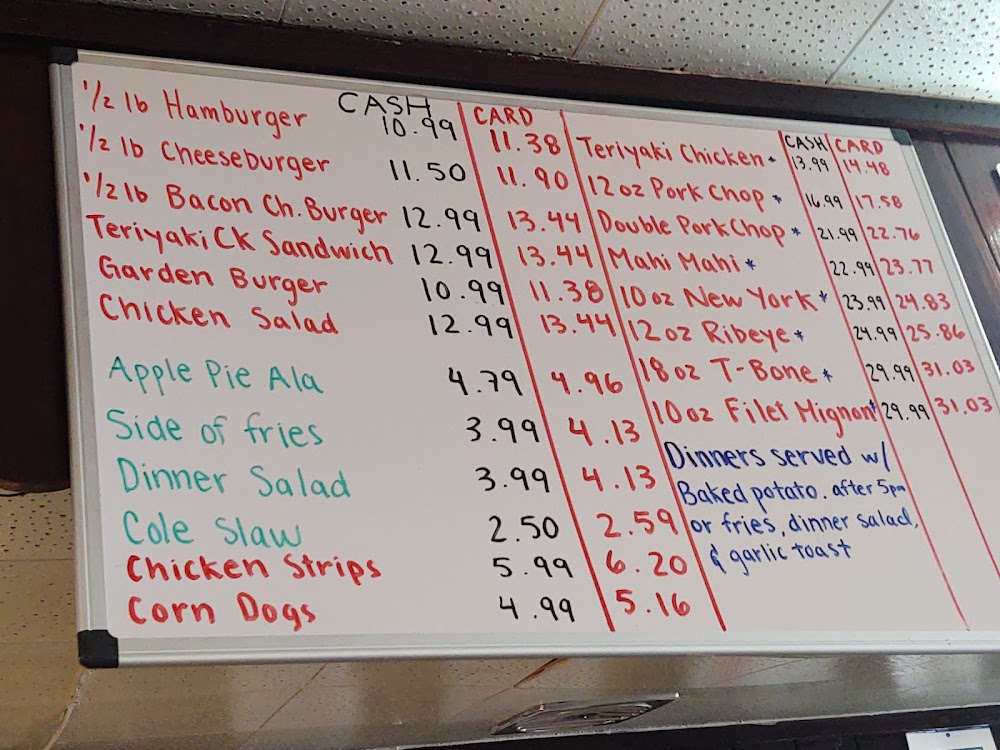 CASH CARD
1/2 lb Hamburger 10.99 11.38
1/2 lb Cheeseburger 11.50 11.90
1/2 lb Bacon Ch. Burger 12.99 13.44
Teriyaki CK Sandwich 12.99 13.44
Garden Burger 10.99 11.38
Chicken Salad 12.99 13.44
Apple Pie Ala 4.79 4.96
Side of fries 3.99 4.13
Dinner Salad 3.99 4.13
Cole Slaw 2.50 2.59
Chicken Strips 5.99 6.20
Corn Dogs 4.99 5.16
CASH CARD
Teriyaki Chicken * 13.99 14.48
12 oz Pork Chop * 16.99 17.58
Double Pork Chop * 21.99 22.76
Mahi Mahi * 22.99 23.77
10 oz New York * 23.99 24.83
12 oz Ribeye * 24.99 25.86
18 oz T-Bone * 29.99 31.03
10 oz Filet Mignon * 29.99 31.03
Dinners served w/
Baked potato. after 5pm
or fries, dinner salad,
& garlic toast